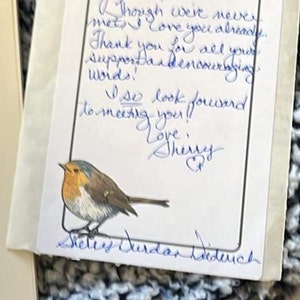 (Though we've never
met I love you already.
Thank you for all your
support and encouraging
words!
I so look forward
to meeting you!!
Love,
Sherry
Sherry Durdan Diederich